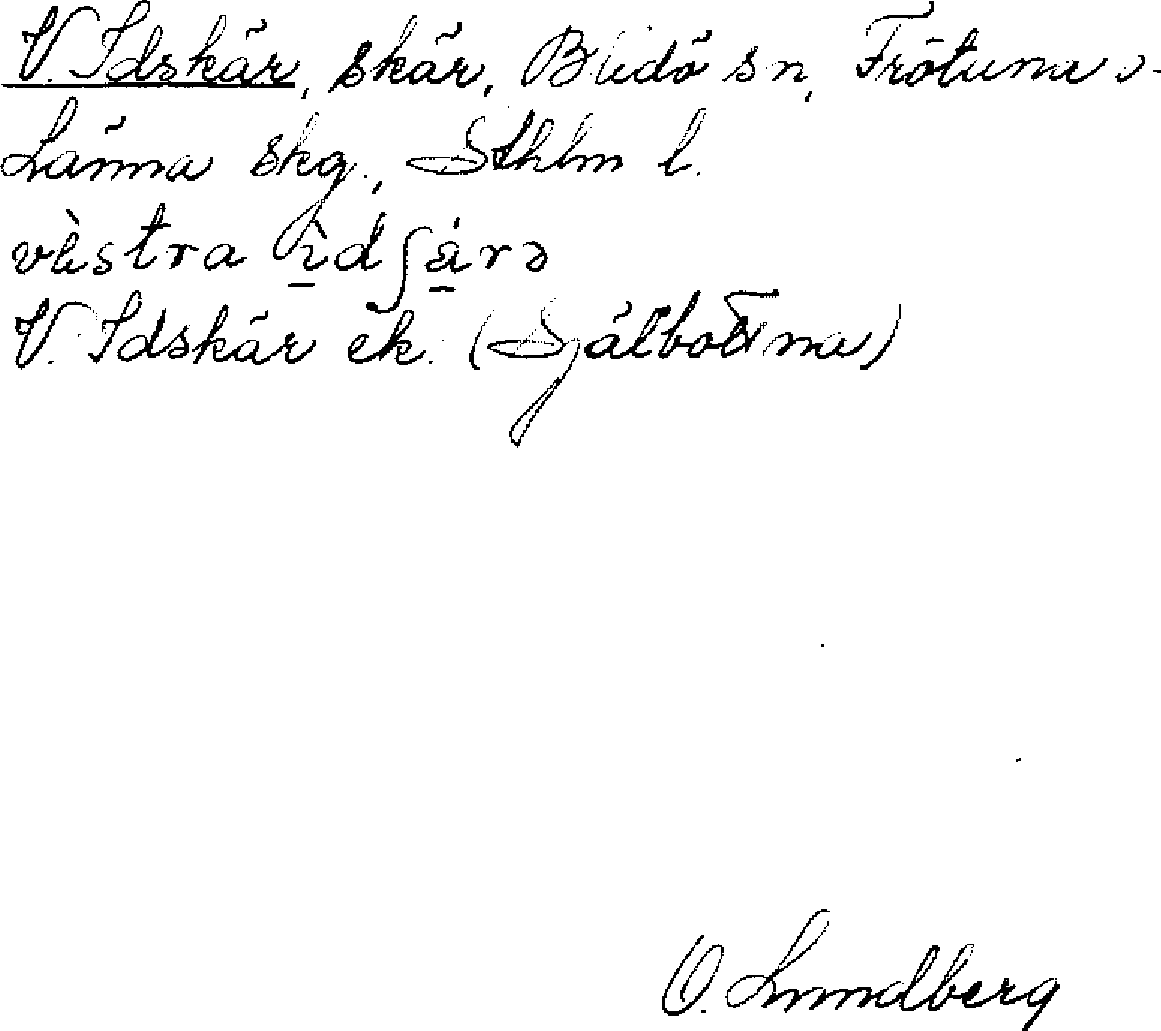 V. Idskär, skär, Blidö sn, Frötuna o.
Länna skg., Sthlm l.
västra ìdʃä́rə
V. Idskär ek. (Själbottna)
O. Lundberg